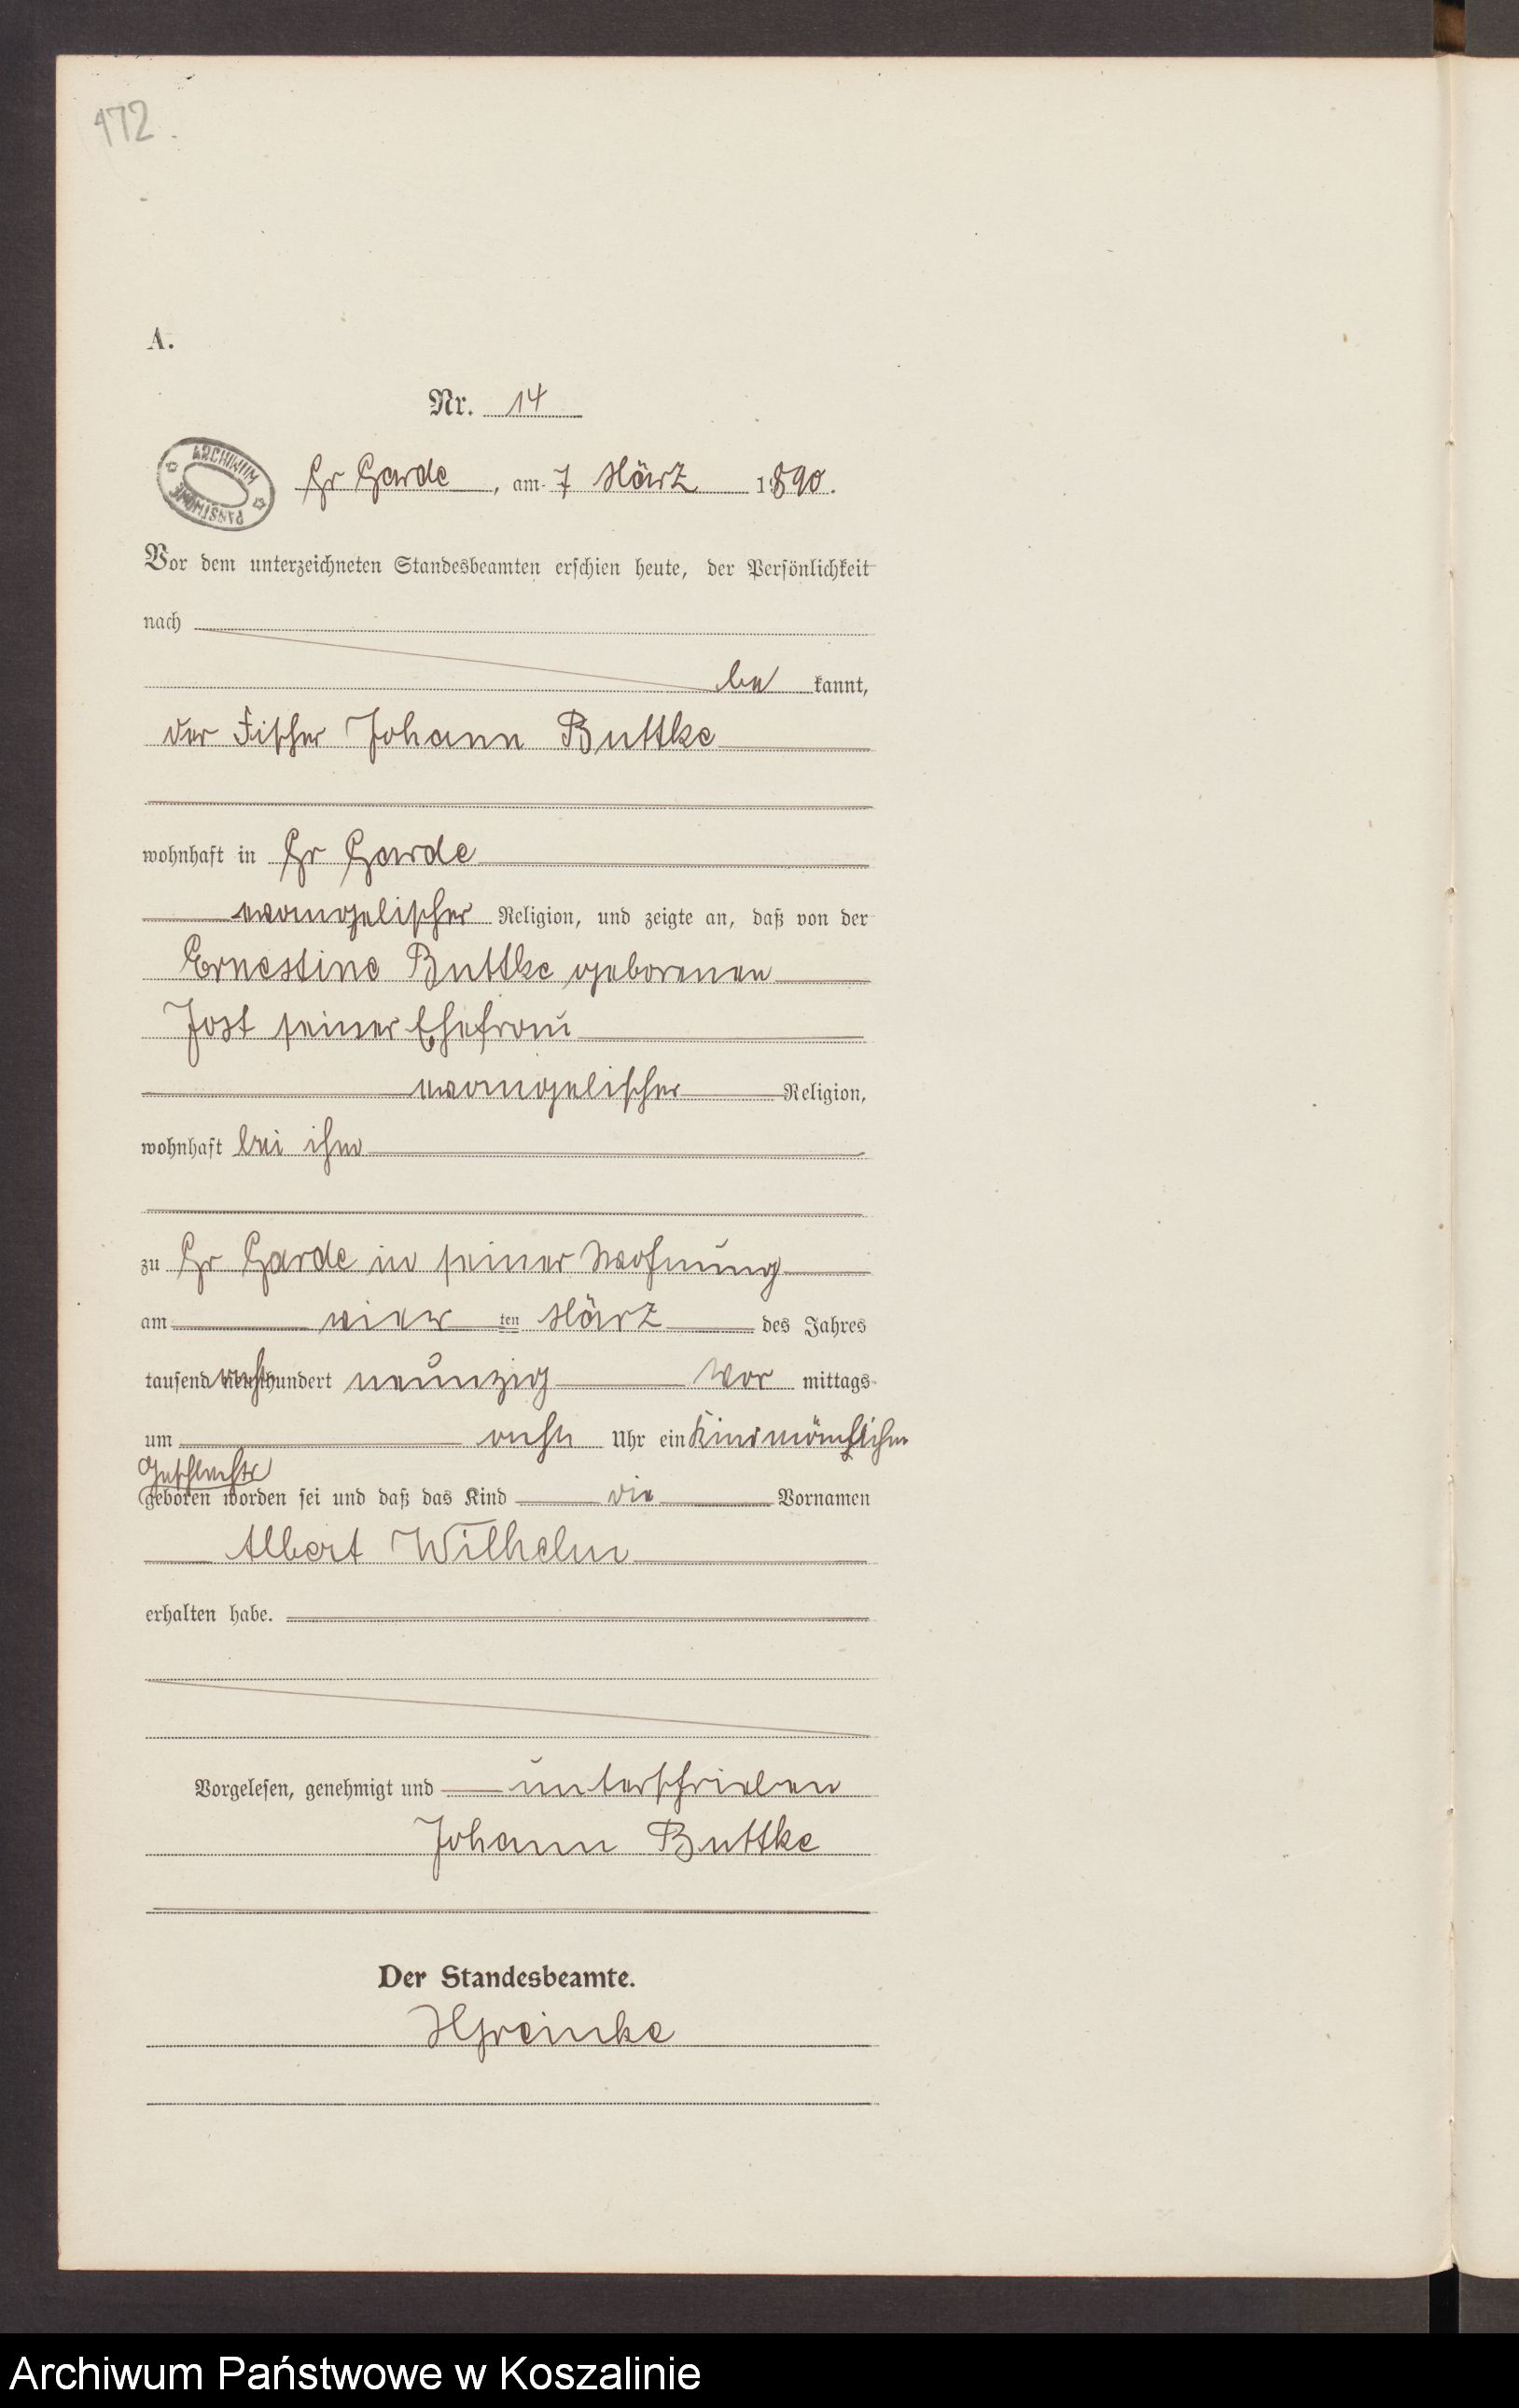 172.
A.
Nr. 14
ARCHIWUM PAŃSTWOWE
Gr Garde, am 7 März 1890.
Vor dem unterzeichneten Standesbeamten erschien heute, der Persönlichkeit
nach
be kannt,
der Fischer Johann Buttke
wohnhaft in Gr Garde
evangelischer Religion, und zeigte an, daß von der
Ernestine Buttke geborenen
Jost seiner Ehefrau
evangelischer Religion,
wohnhaft bei ihm
zu Gr Garde in seiner Wohnung
am vier ten März des Jahres
tausend acht hundert neunzig Vor mittags
um acht Uhr ein Kind männlichen
Geschlechts
geboren worden sei und daß das Kind die Vornamen
Albert Wilhelm
erhalten habe.
Vorgelesen, genehmigt und unterschrieben
Johann Buttke
Der Standesbeamte.
HGreinke
Archiwum Państwowe w Koszalinie